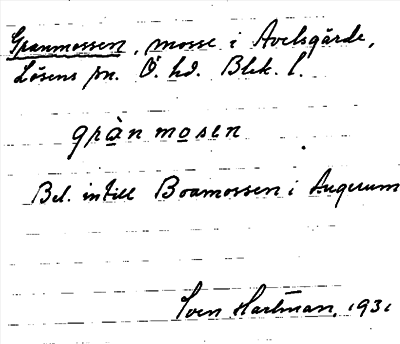 Granmossen, mosse i Avelsgärde,
Lösens sn. Ö. hd. Blek. l.
grànmosen
Bel. intill Boamossen i Augerum
Sven Hartman, 1931